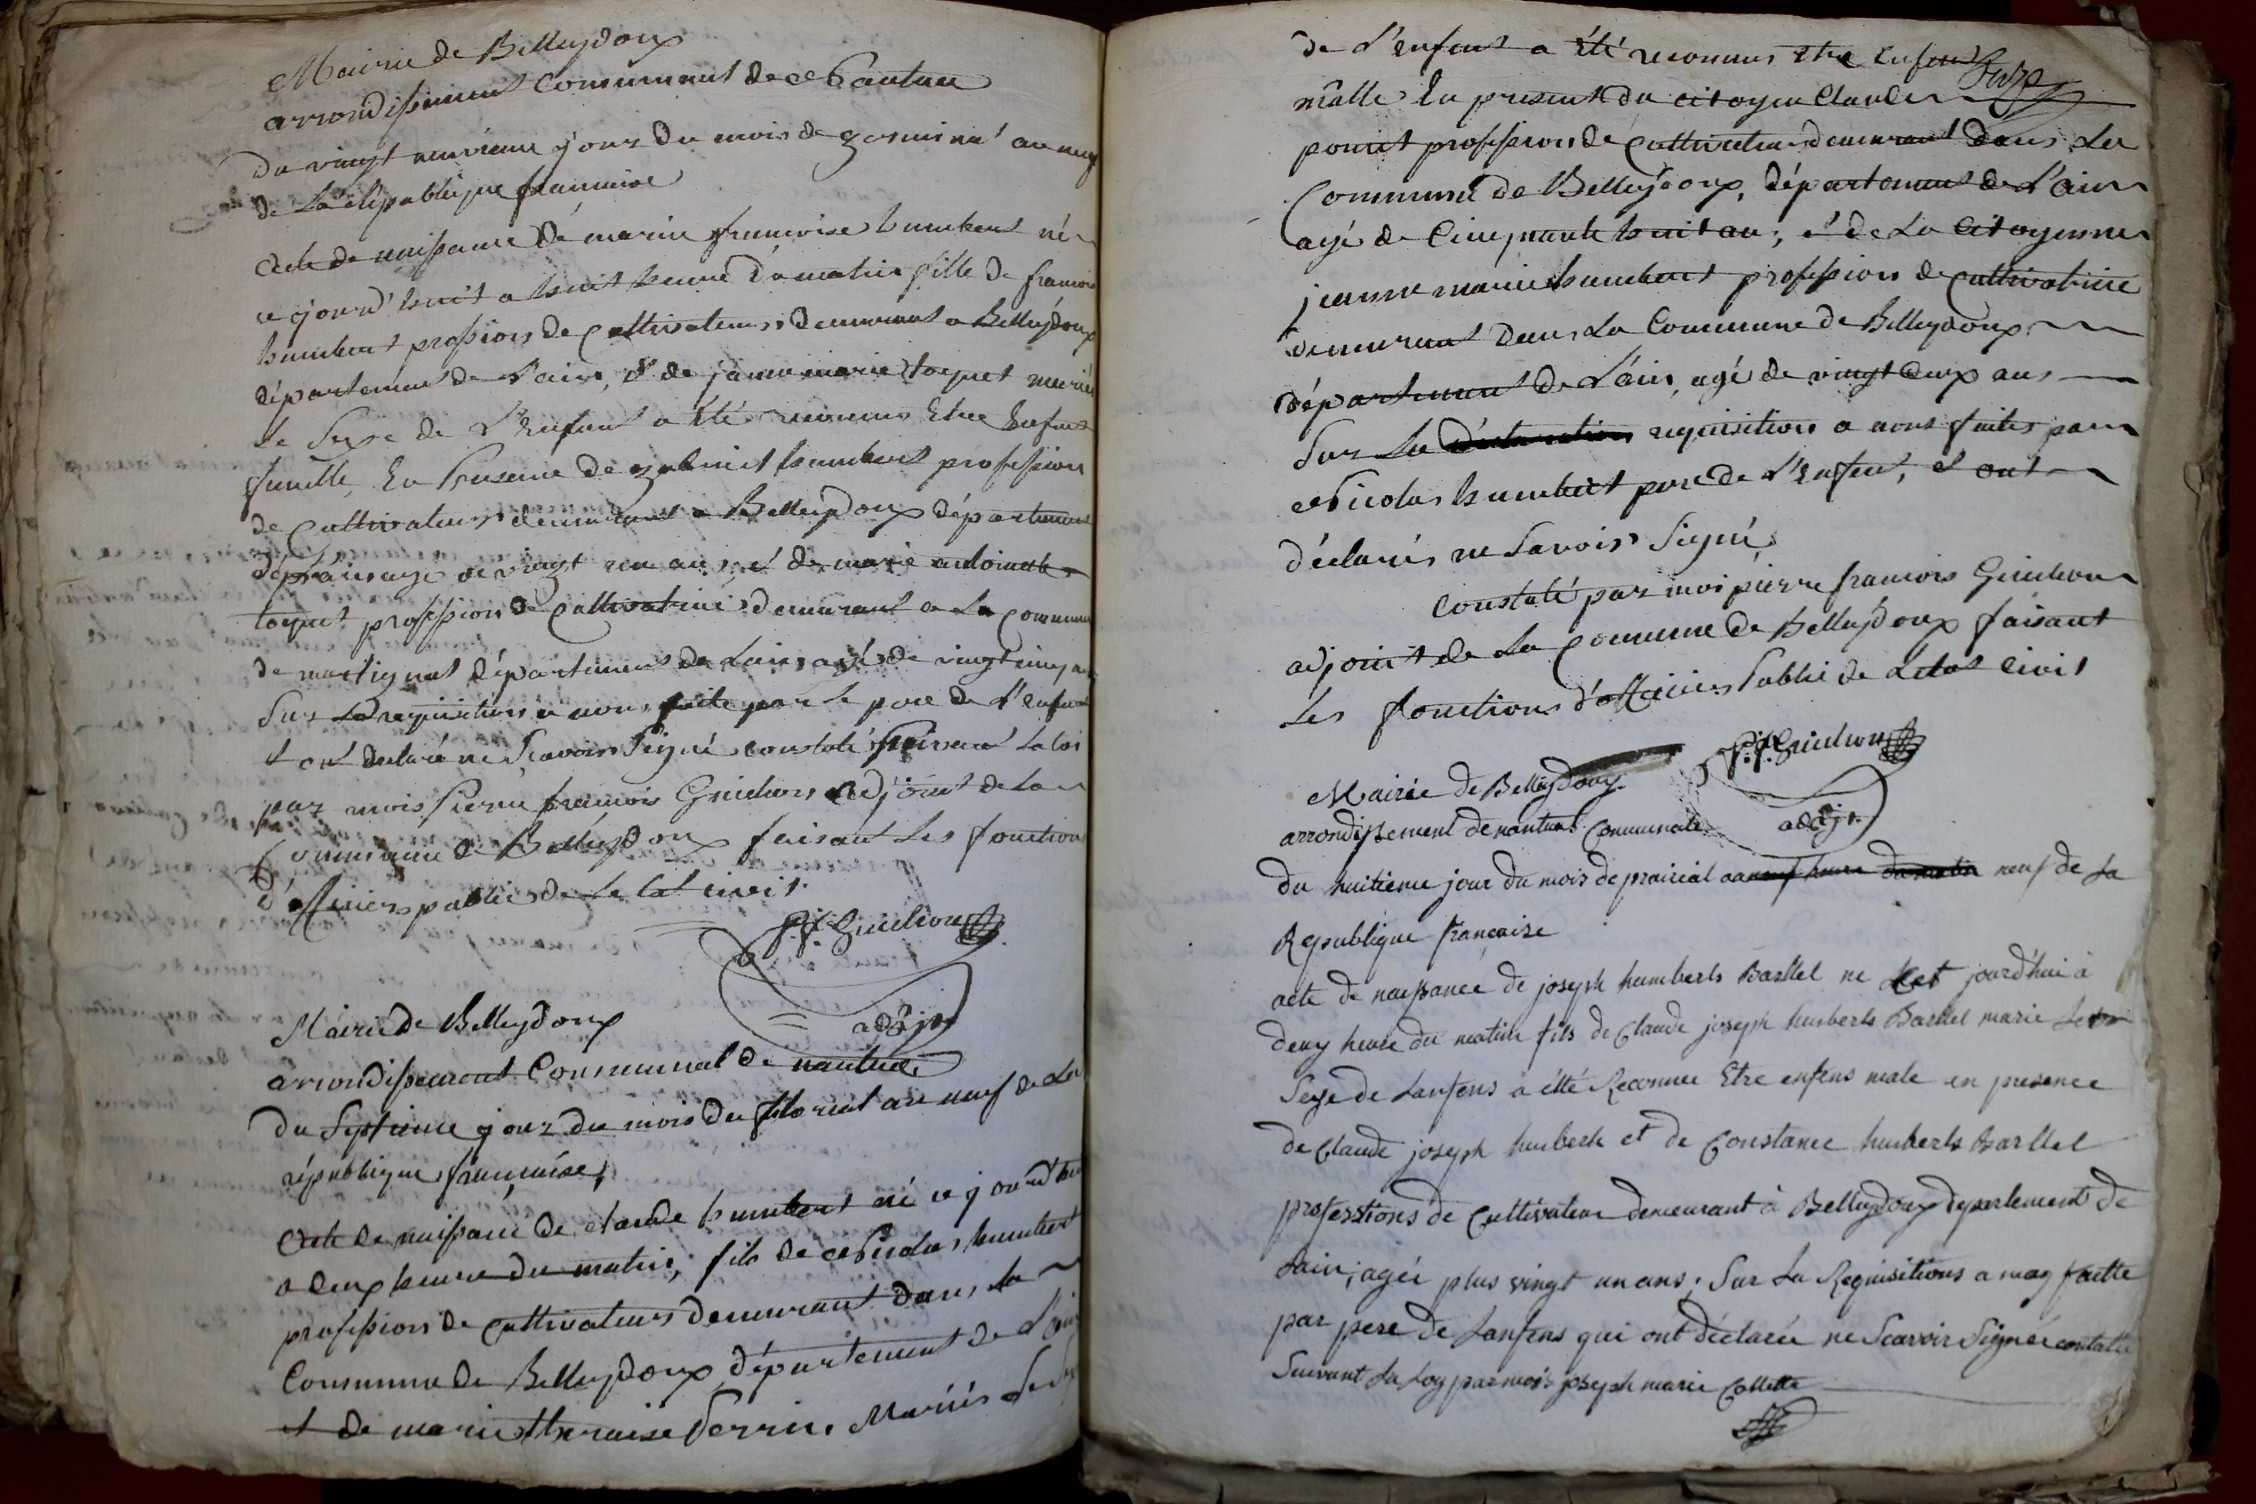 Mairie de Belleydoux
arrondissement Communal de Nantua
du vingt neuvieme jour du mois de germinal an neuf
de La République francaise
acte de naissance de marie francoise humbert né
ce jourd'huit a huit heure du matin fille de francois
humbert profession de Cultivateur demeurant a Belleydoux
département de l'ain, et de janne marie toquet mariés
Le Sexe de L'Enfant a été reconnus Etre Enfant
fumelle, En Presence de humbert profession
de Cultivateur demeurant a Belleydoux département
de l'ain agé de vingt ans, et de marie antoinette
toquet profession de Cultivatrice demeurant a La Commune
de martignat département de Lain agé de vingt cinq ans
Sur La requisition a nous faite par le pere de L'enfant
et ont declaré ne Scavoir Signé constaté Suivant La loi
par mois Pierre francois Guichon adjoint de La
Commune de Belleydoux faisant les fonctions
d'officier public de Le tat civil
P. f. Guichon
adjt
Mairie de Belleydoux
arrondissement Communal de nantua
du Septieme jour du mois du floreal an neuf de La
république francaise,
acte de naissance de claude humbert né ce jourd'hui
a deux heure du matin, fils de Nicolas humbert
profession de cultivateur demeurant dans La
Commune de Belleydoux département de L'ain
et de marie theraise Perrin. Mariés Le Sexe
de L'enfant a été reconnus etre Enfant
malle En present du citoyen Claude
profession de Cultivateur demeurant dans La
Commune de Belleydoux, département de L'ain
agé de Cinquante huit an, et de La Citoyenne
jeanne marie humbert profession de Cultivatrice
demeurant dans La Commune de Belleydoux
département de L'ain, agé de vingt deux ans
Sur La requisition a nous faites par
Nicolas humbert pere de L'Enfant, et ont
déclarés ne Savoir Signé
Constaté par moi pierre francois Guichon
adjoint de La Commune de Belleydoux faisant
Les fonctions d'officier Public de Letat civil
P. f. Guichon
adjt
Mairie de Belleydoux
arrondissement de nantua Communale
du huitieme jour du mois de prairial an neuf heure du matin neuf de La
Republique francaise
acte de naissance de joseph humberts Barllet ne Cet jourd'hui à
deux heure du matin fils de Claude joseph humberts Barllet marie Le
Sexe de Lanfens a été Reconnue Etre enfens male en presence
de Claude joseph humberts et de Constance humberts Barllet
professions de Cultivateur demeurant à Belleydoux departement de
Lain, agéé plus vingt un ans, Sur La Requisitions a moy faitte
par pere de Lanfens qui ont déclarée ne Scavoir Signée contatée
Suivant La Loy par mois joseph marie Collette